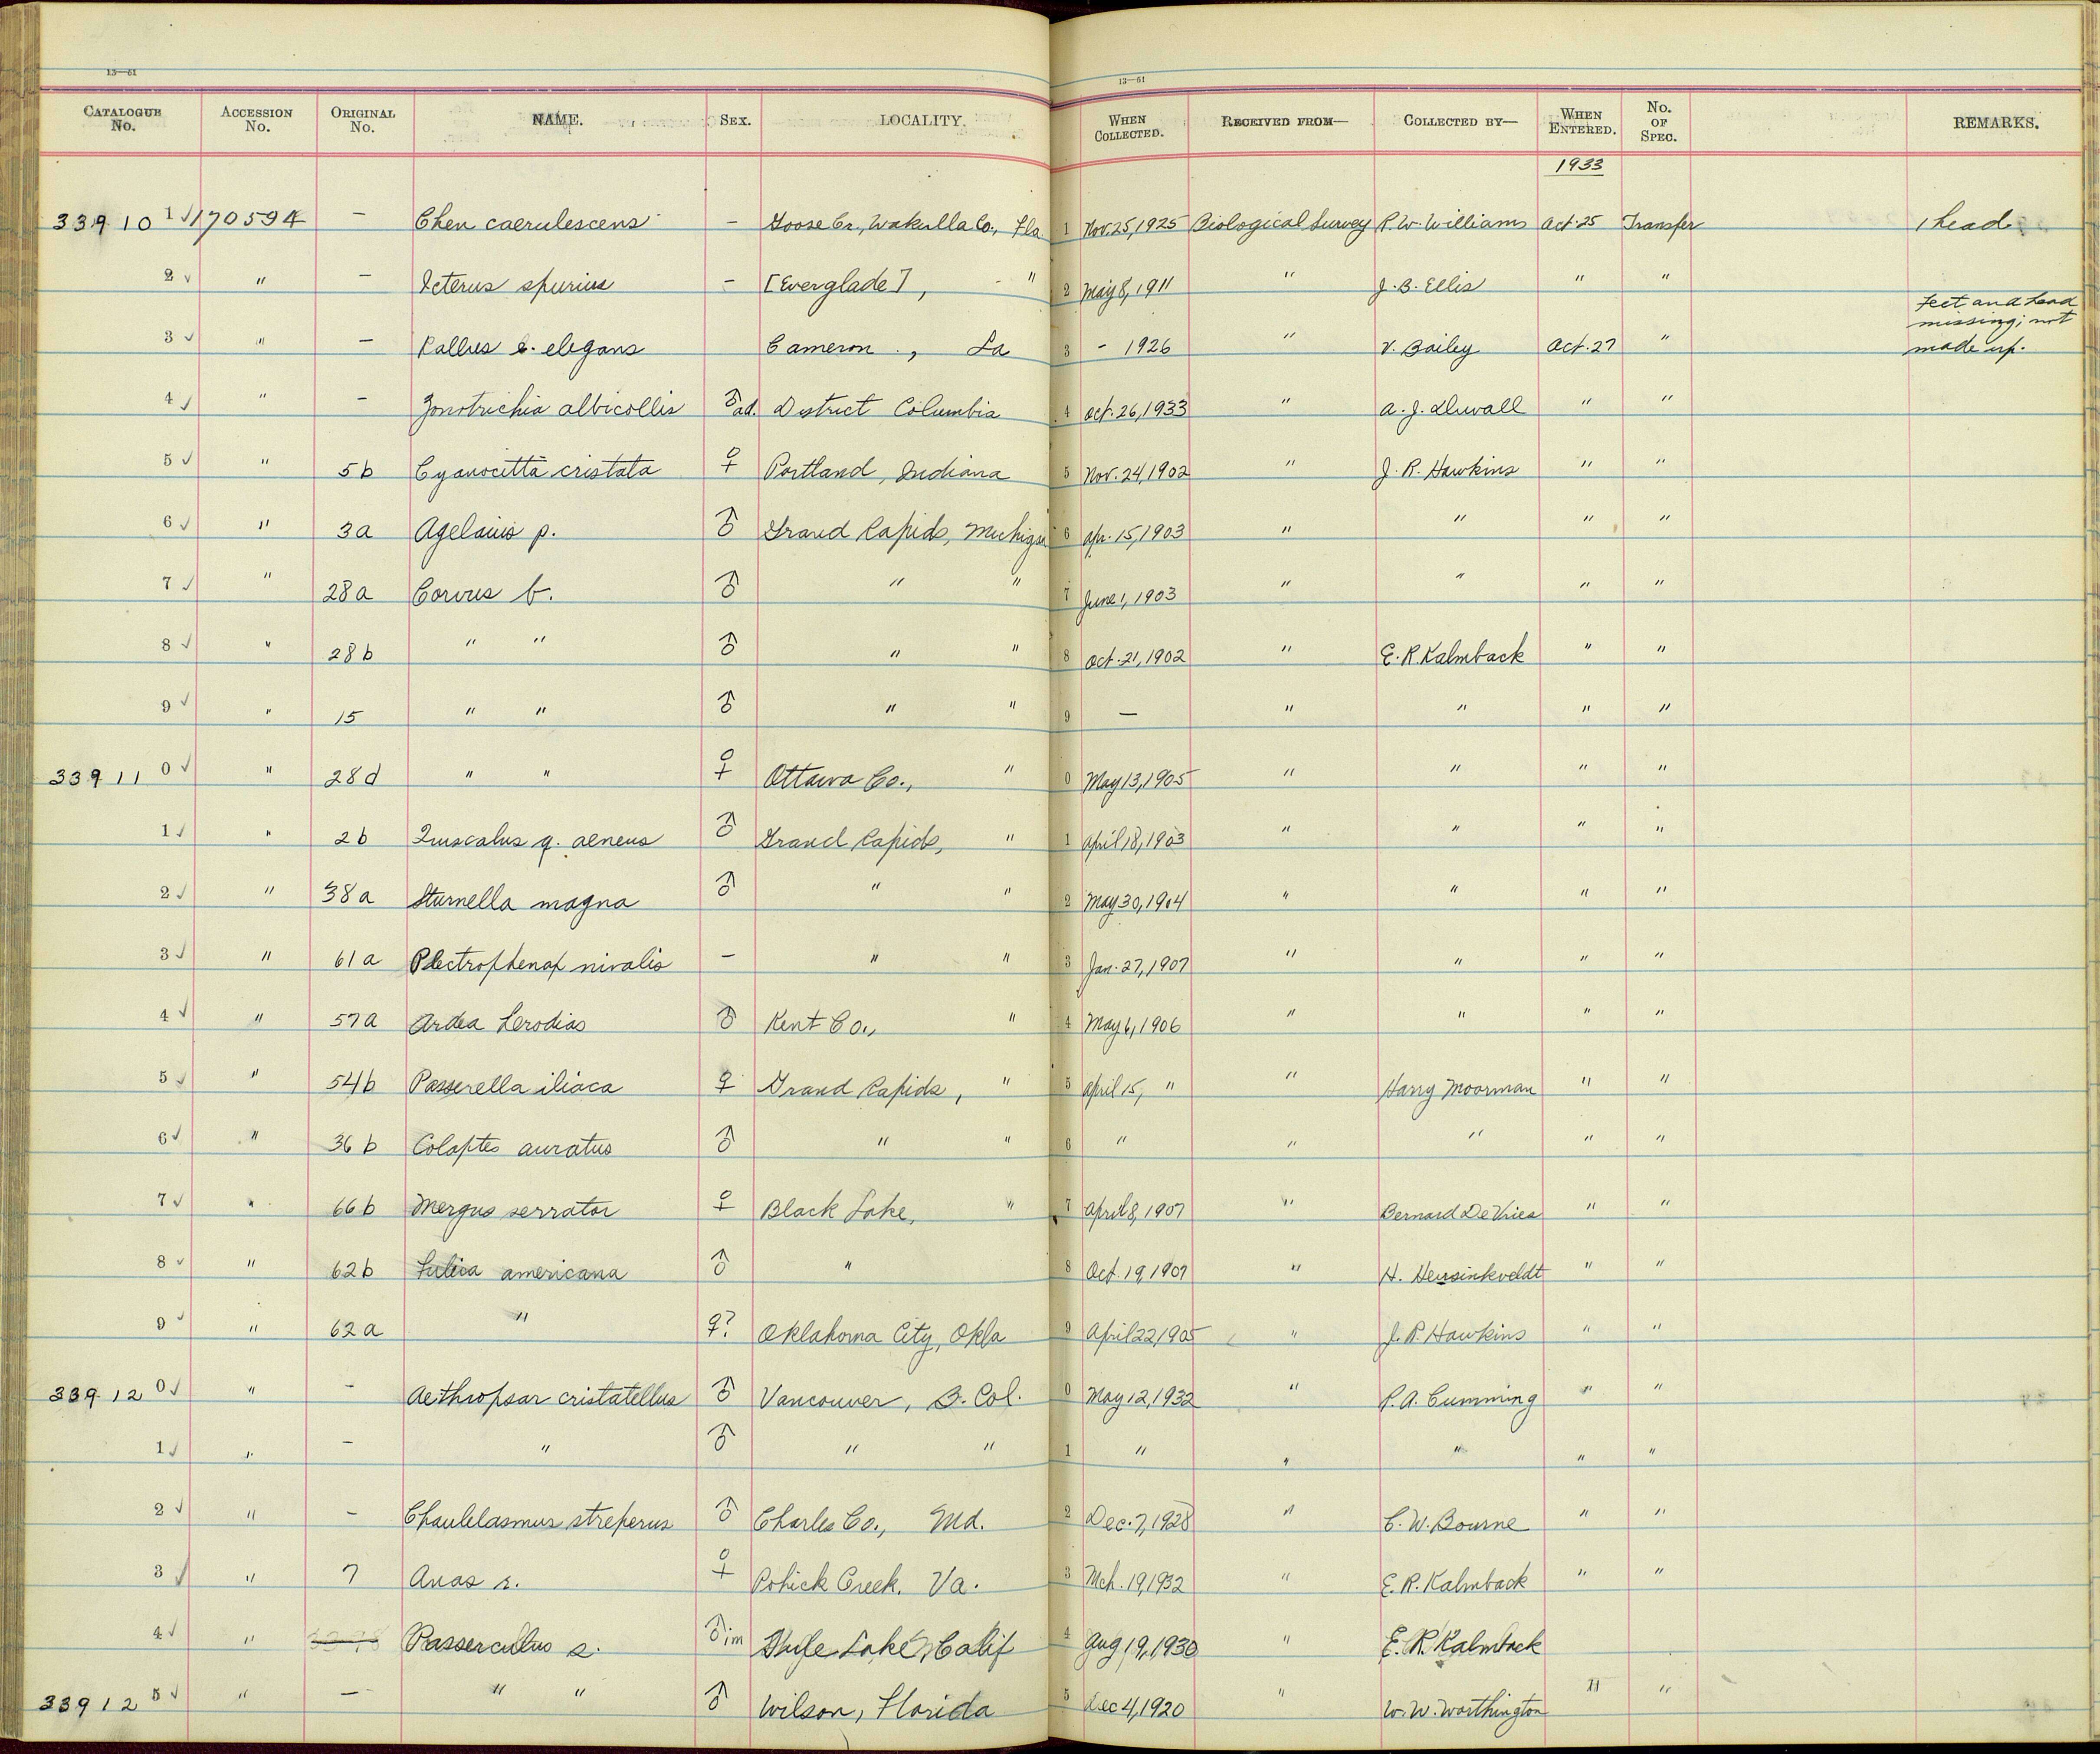 13—61 13—61
CATALOGUE No. ACCESSION No. ORIGINAL No. NAME. SEX. LOCALITY. WHEN COLLECTED. RECEIVED FROM— COLLECTED BY— WHEN ENTERED. No. OF SPEC. REMARKS.
1933
339101 ✓ 170594 — Chen caerulescens — Goose Cr., Wakulla Co., Fla 1 Nov. 25, 1925 Biological Survey R. W. Williams Oct. 25 Transfer 1 head
2 ✓ " — Icterus spurius — [Everglade], " 2 May 8, 1911 " J. B. Ellis " "
3 ✓ " — Rallus e. elegans Cameron, La 3 - 1926 " V. Bailey Oct. 27 " Feet and head missing; not made up.
4 ✓ " — Zonotrichia albicollis ♂ ad. District Columbia 4 Oct. 26, 1933 " A. J. Duvall " "
5 ✓ " 5b Cyanocitta cristata ♀ Portland, Indiana 5 Nov. 24, 1902 " J. R. Hawkins " "
6 ✓ " 3a Agelaius p. ♂ Grand Rapids, Michigan 6 Apr. 15, 1903 " " " "
7 ✓ " 28a Corvus b. ♂ " " 7 June 1, 1903 " " " "
8 ✓ " 28b " " ♂ " " 8 Oct. 21, 1902 " E. R. Kalmback " "
9 ✓ " 15 " " ♂ " " 9 — " " " "
339110 ✓ " 28d " " ♀ Ottawa Co., " 0 May 13, 1905 " " " "
1 ✓ " 2b Quiscalus q. aeneus ♂ Grand Rapids, " 1 April 18, 1903 " " " "
2 ✓ " 38a Sturnella magna ♂ " " 2 May 30, 1904 " " " "
3 ✓ " 61a Plectrophenax nivalis — " " 3 Jan. 27, 1907 " " " "
4 ✓ " 57a Ardea herodias ♂ Kent Co., " 4 May 6, 1906 " " " "
5 ✓ " 54b Passerella iliaca ♀ Grand Rapids, " 5 April 15, " " Harry Moorman " "
6 ✓ " 36b Colaptes auratus ♂ " " 6 " " " " "
7 ✓ " 66b Mergus serrator ♀ Black Lake, " 7 April 8, 1907 " Bernard DeVries " "
8 ✓ " 62b Fulica americana ♂ " 8 Oct. 19, 1907 " H. Hersinkveldt " "
9 ✓ " 62a " ♀? Oklahoma City, Okla 9 April 22, 1905 " J. R. Hawkins " "
339120 ✓ " — Aethropsar cristatellus ♂ Vancouver, B. Col. 0 May 12, 1932 " R. A. Cumming " "
1 ✓ " — " ♂ " " 1 " " " " "
2 ✓ " — Chaulelasmus streperus ♂ Charles Co., Md. 2 Dec. 7, 1928 " C. W. Bourne " "
3 ✓ " 7 Anas r. ♀ Pohick Creek, Va. 3 Mch. 19, 1932 " E. R. Kalmback " "
4 ✓ " Passerculus s. ♂ im Tule Lake, Calif 4 Aug 19, 1930 " E. R. Kalmback
339125 ✓ " — " " ♂ Wilson, Florida 5 Dec 4, 1920 " W. W. Worthington " "